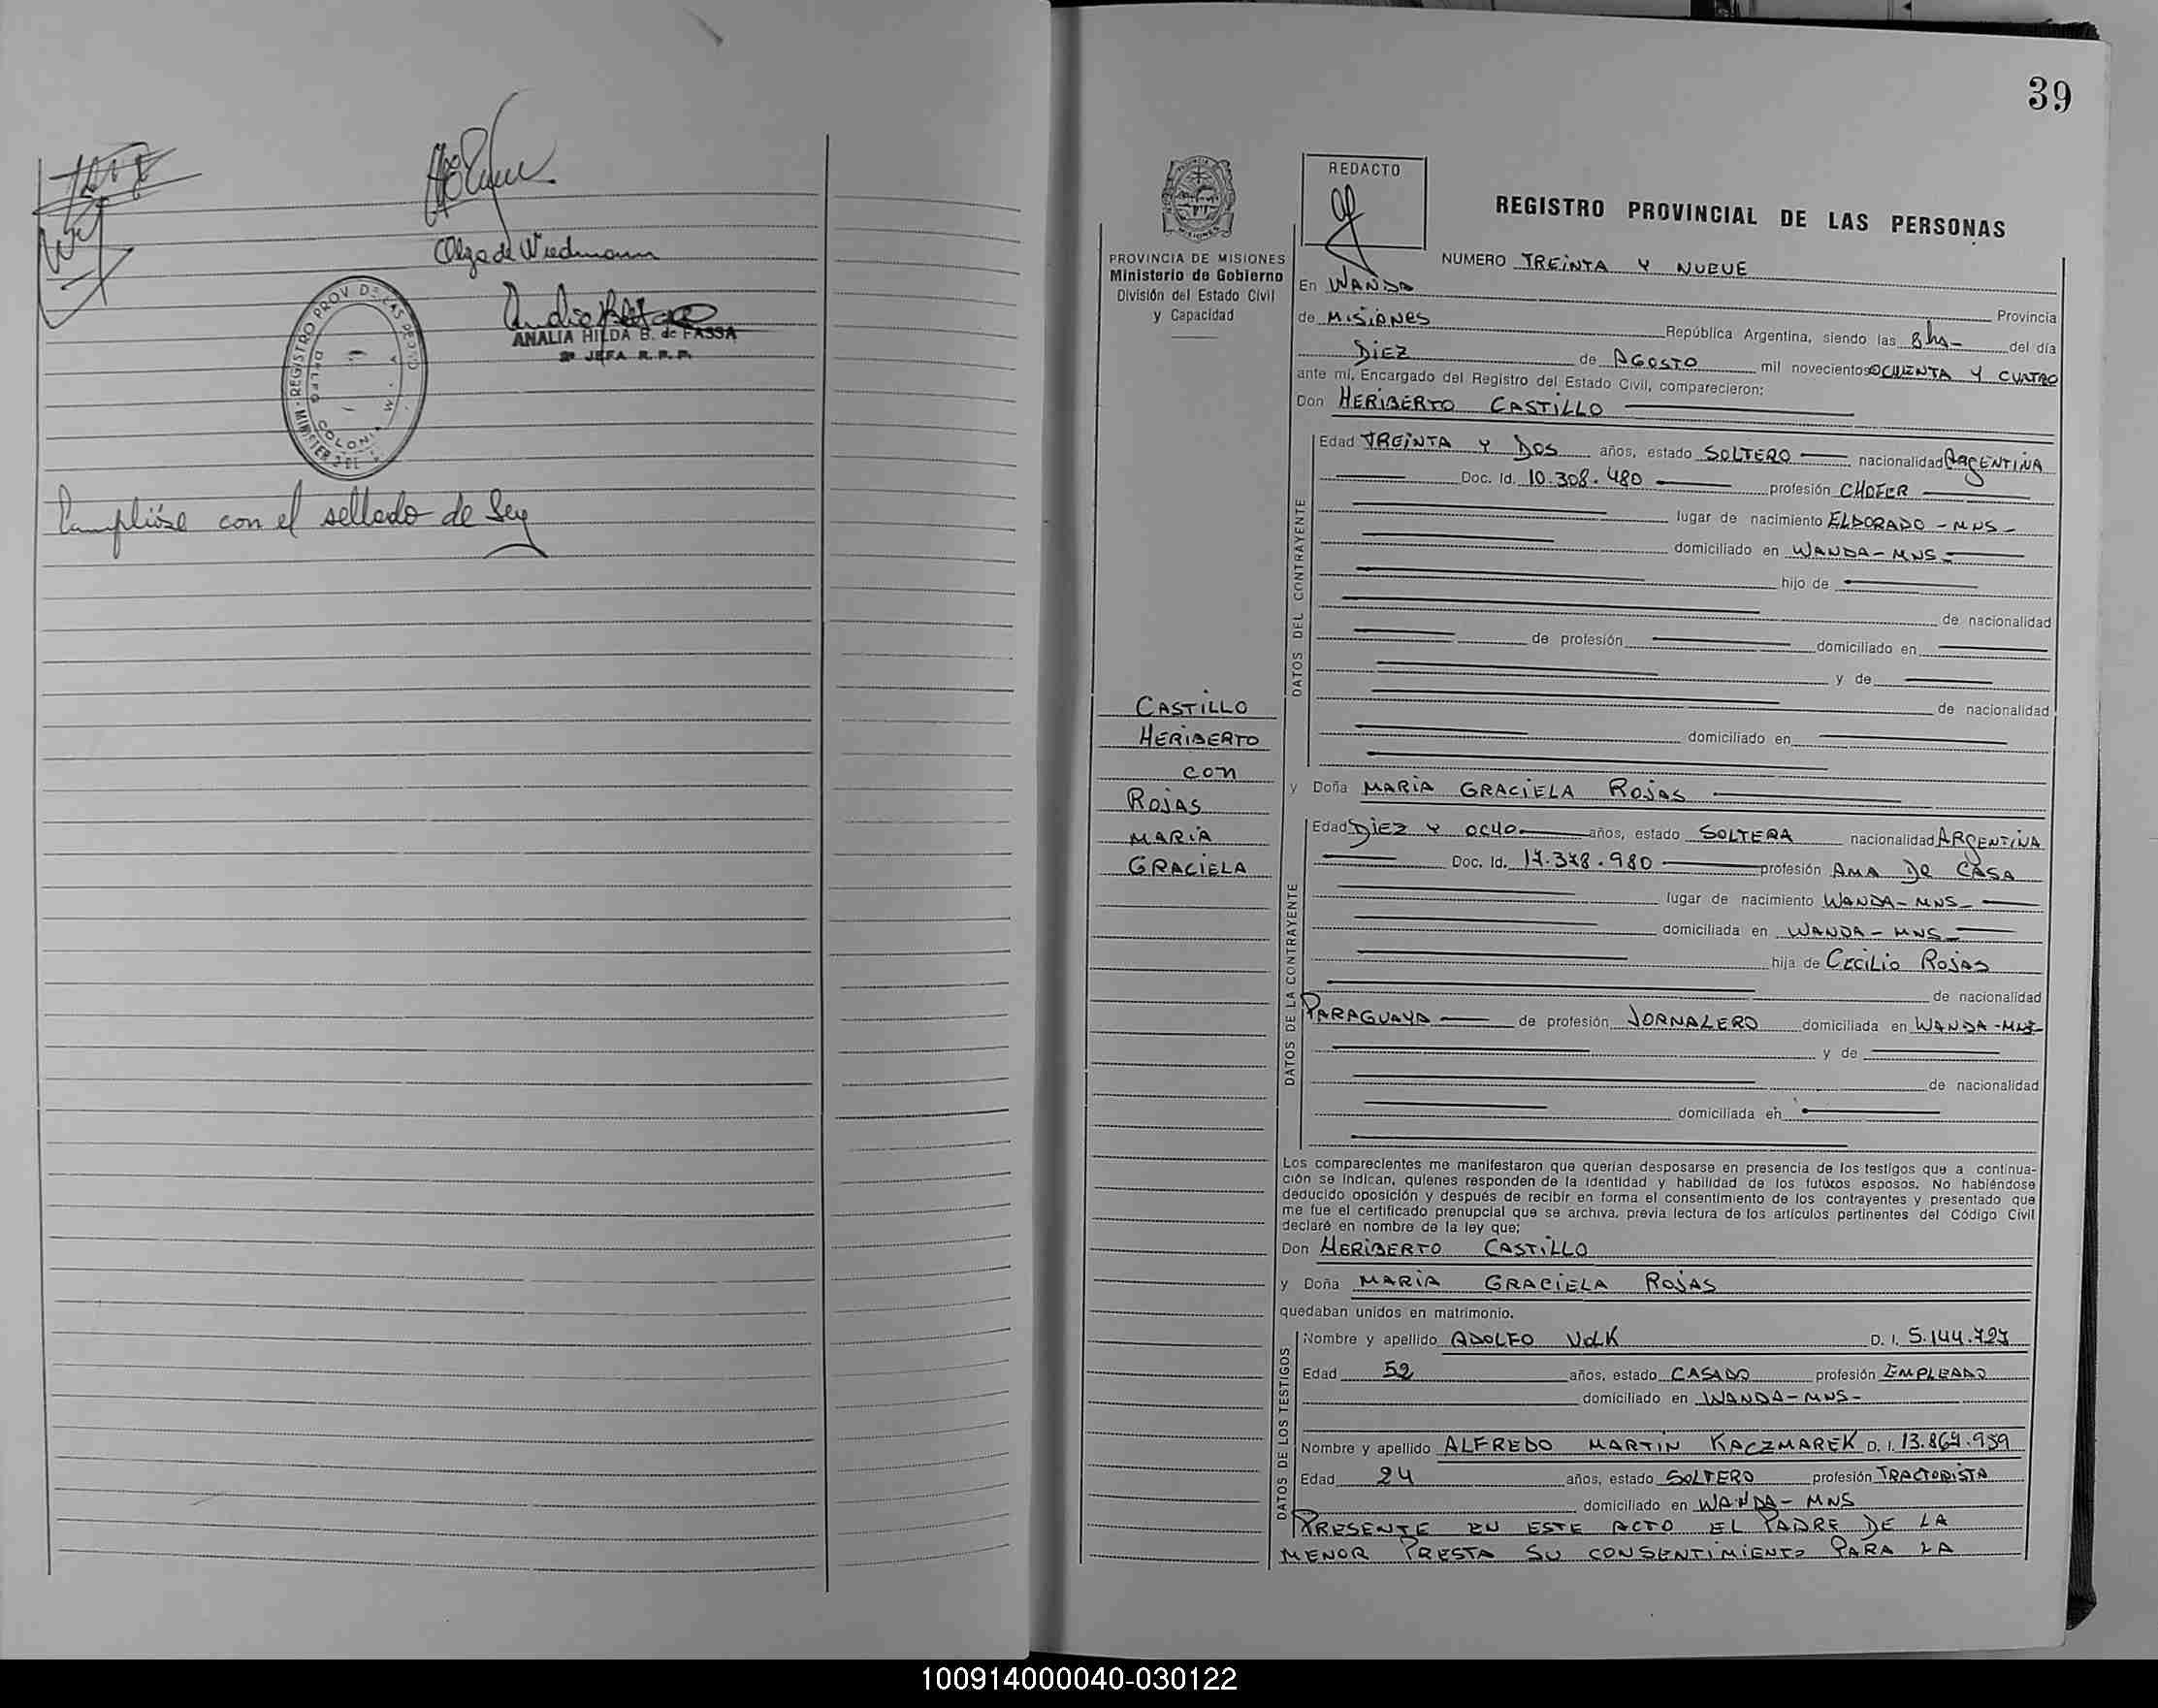 Olga de Wiedmann
ANALIA HILDA B. de FASSA
2ª JEFA R. P. P.
MINISTERIO DE REGISTRO PROV DE LAS PERSO
COLONIA W
Cumplióse con el sellado de Ley
39
REDACTO
REGISTRO PROVINCIAL DE LAS PERSONAS
PROVINCIA DE MISIONES
Ministerio de Gobierno
División del Estado Civil
y Capacidad
NUMERO TREINTA Y NUEVE
En WANDA
Provincia
de MISIONES República Argentina, siendo las 8 hs- del día
DIEZ de AGOSTO mil novecientos OCHENTA Y CUATRO
ante mí, Encargado del Registro del Estado Civil, comparecieron:
Don HERIBERTO CASTILLO
DATOS DEL CONTRAYENTE
Edad TREINTA Y DOS años, estado SOLTERO nacionalidad ARGENTINA
Doc. Id. 10.308.480 profesión CHOFER
lugar de nacimiento ELDORADO - MNS -
domiciliado en WANDA - MNS -
hijo de
de nacionalidad
de profesión domiciliado en
y de
de nacionalidad
domiciliado en
CASTILLO
HERIBERTO
con
ROJAS
MARIA
GRACIELA
y Doña MARIA GRACIELA ROJAS
DATOS DE LA CONTRAYENTE
Edad DIEZ Y OCHO años, estado SOLTERA nacionalidad ARGENTINA
Doc. Id. 17.378.980 profesión AMA DE CASA
lugar de nacimiento WANDA - MNS -
domiciliada en WANDA - MNS -
hija de CECILIO ROJAS
de nacionalidad
PARAGUAYA de profesión JORNALERO domiciliada en WANDA - MNS
y de
de nacionalidad
domiciliada en
Los comparecientes me manifestaron que querían desposarse en presencia de los testigos que a continua-
ción se indican, quienes responden de la identidad y habilidad de los futuros esposos. No habiéndose
deducido oposición y después de recibir en forma el consentimiento de los contrayentes y presentado que
me fue el certificado prenupcial que se archiva, previa lectura de los artículos pertinentes del Código Civil
declaré en nombre de la ley que:
Don HERIBERTO CASTILLO
y Doña MARIA GRACIELA ROJAS
quedaban unidos en matrimonio.
DATOS DE LOS TESTIGOS
Nombre y apellido ADOLFO VOLK D. I. 5.144.727
Edad 52 años, estado CASADO profesión EMPLEADO
domiciliado en WANDA - MNS -
Nombre y apellido ALFREDO MARTIN KACZMAREK D. I. 13.869.959
Edad 24 años, estado SOLTERO profesión TRACTORISTA
domiciliado en WANDA - MNS
PRESENTE EN ESTE ACTO EL PADRE DE LA
MENOR PRESTA SU CONSENTIMIENTO PARA LA
100914000040-030122